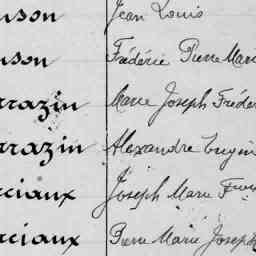 nson Jean Louis
nson Frédéric Pierre Mari
rrazin Marie Joseph Fréder
rrazin Alexandre Eugèn
rciaux Joseph Marie
rciaux Pierre Marie Joseph